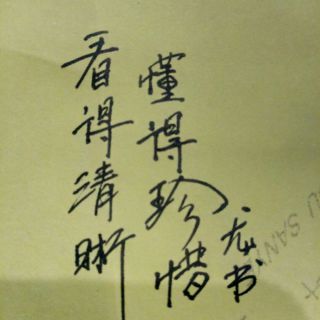 懂得珍惜
看得清晰
友书
SAN